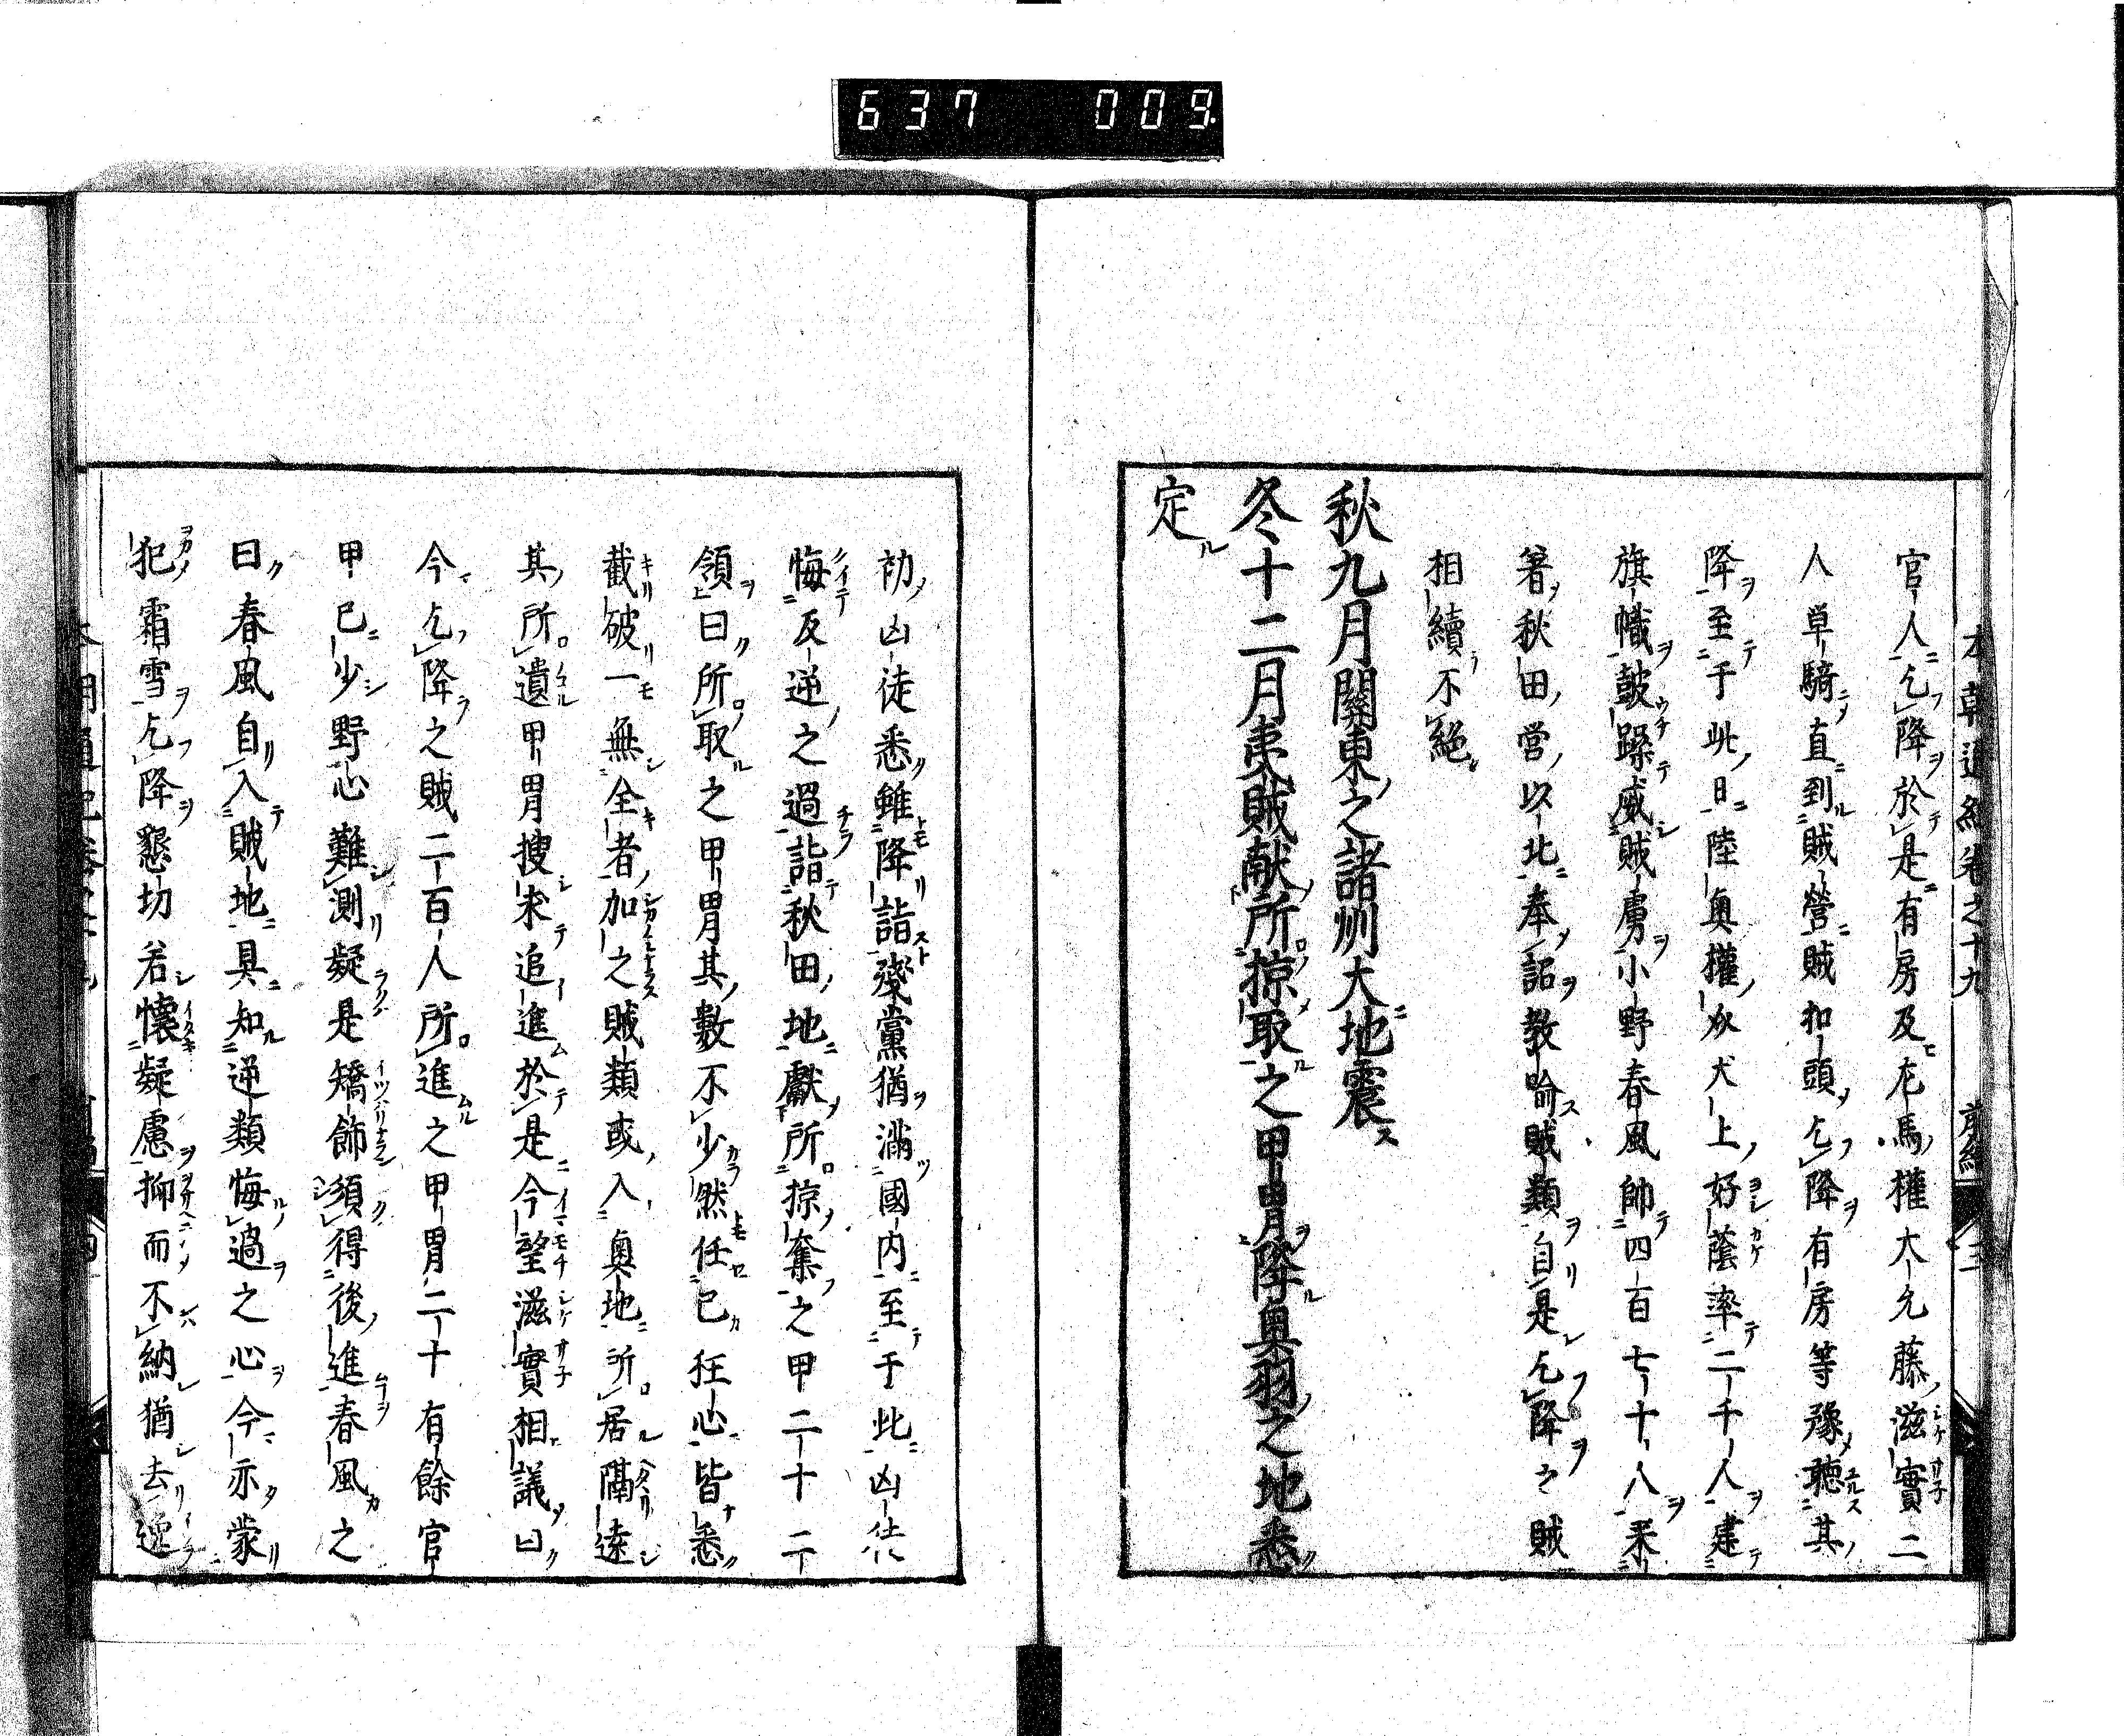 637 009
本朝通紀卷之十九 前編 三
官人乞降於是有房及左馬權大允藤滋實二
人單騎直到賊營賊扣頭乞降有房等豫聽其
降至于此日陸奥權介犬上好蔭率二千人建
旗幟鼓躁威賊虜小野春風帥四百七十八釆
着秋田營以北奉詔教喻賊類自是乞降之賊
相續不絕
秋九月關東之諸州大地震
冬十二月夷賊献所掠取之甲冑降奥羽之地悉
定
初凶徒悉雖降詣殘黨猶滿國内至于此凶徒
悔反逆之過詣秋田地獻所掠奪之甲二十二
領曰所取之甲冑其數不少然任己狂心皆悉
截破一無全者加之賊類或入奥地所居隔遠
其所遺甲冑搜求追進於是今望滋實相議曰
今乞降之賊二百人所進之甲冑二十有餘官
甲已少野心難測疑是矯飾須得後進春風之
曰春風自入賊地具知逆類悔過之心今亦蒙
犯霜雪乞降懇切若懷疑慮抑而不納猶去逸